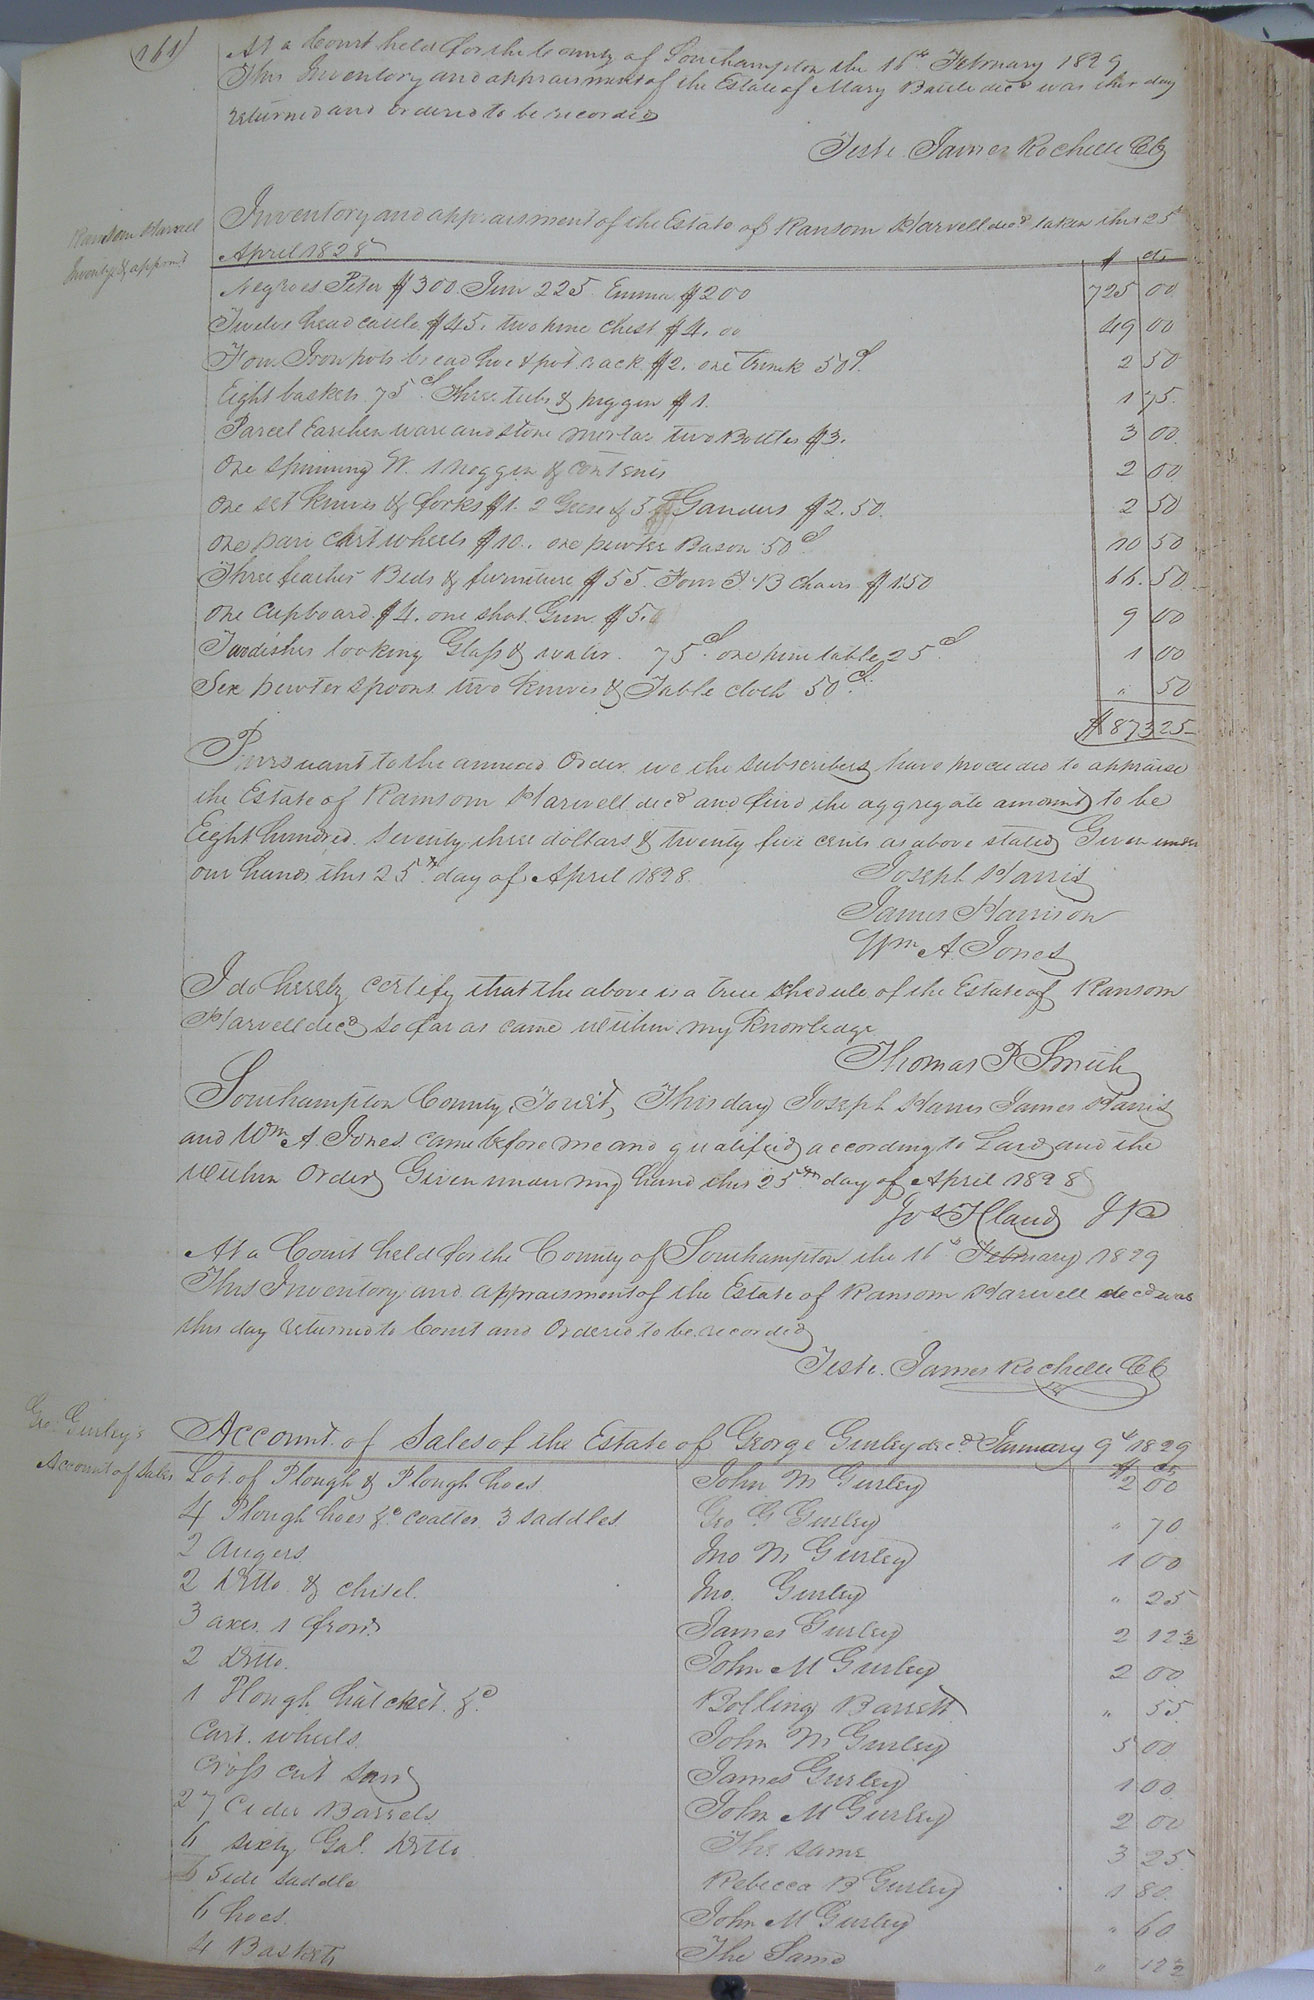 161
At a Court held for the County of Southampton the 16th February 1829
This Inventory and appraisment of the Estate of Mary Battle decd was this day
returned and ordered to be recorded
Teste. James Rochelle CC
Ransom Harvell
Inventy & appramt
Inventory and appraisment of the Estate of Ransom Harvell decd taken this 25th
April 1828
$ cts
Negroes Peter $300 Jim 225. Emma $200 725 00
Twelve head cattle $45. two pine chest $4.00 49 00
Four Iron pots bread hoe & pot rack $2. one Trunk 50cts. 2 50
Eight baskets 75cts. Three tubs & piggin $1. 1 75.
Parcel Earthen ware and stone mortar two Bottles $3. 3 00.
One spinning W. 1 noggin & contents 2 00.
One set knives & forks $1. 2 Geese & 3 Ganders $2.50. 2 50
One pair cart wheels $10., one pewter Bason 50cts 10 50
Three feather Beds & furniture $55. Four F B chairs $1.50 66.50
One Cupboard $4. one shot Gun $5.0 9 00
Two dishes looking Glass & waiter. 75cts. one pine table 25cts 1 00
Six pewter spoons two knives & Table cloth 50cts. " 50
$873 25
Pursuant to the annexed Order we the subscribers have proceeded to appraise
the Estate of Ransom Harwell decd and find the aggregate amount to be
Eight hundred seventy three dollars & twenty five cents as above stated Given under
our hands this 25th day of April 1828.
Joseph Harris
James Harrison
Wm A. Jones
I do hereby certify that the above is a true schedule of the Estate of Ransom
Harvell decd so far as came within my knowledge
Thomas P Smith
Southampton County, Towit, This day Joseph Harris James Harris
and Wm A. Jones came before me and qualified according to Law and the
within Order Given under my hand this 25th day of April 1828
Jos Claud JP
At a Court held for the County of Southampton the 16th February 1829
This Inventory and appraisment of the Estate of Ransom Harwell decd was
this day returned to Court and Ordered to be recorded
Teste. James Rochelle CC
Geo: Gurley's
Account of Sales
Account of Sales of the Estate of George Gurley decd January 9th 1829
$ cts
Lot of Plough & Plough hoes John M Gurley 2 00
4 Plough hoes &c coalter 3 saddles Geo G Gurley " 70
2 Augers Jno M Gurley 1 00
2 Ditto & chisel. Jno. Gurley " 25
3 axes 1 frow James Gurley 2 12½
2 Ditto. John M Gurley 2 00
1 Plough hatchet &c Bolling Barrett " 55
Cart wheels John M Gurley 5 00
Cross cut saw James Gurley 1 00
27 Cider Barrels John M Gurley 2 00
6 sixty Gal Ditto The same 3 25
Side saddle Rebecca B Gurley 1 80
6 hoes. John M Gurley " 60
4 Baskets The Same " 12½